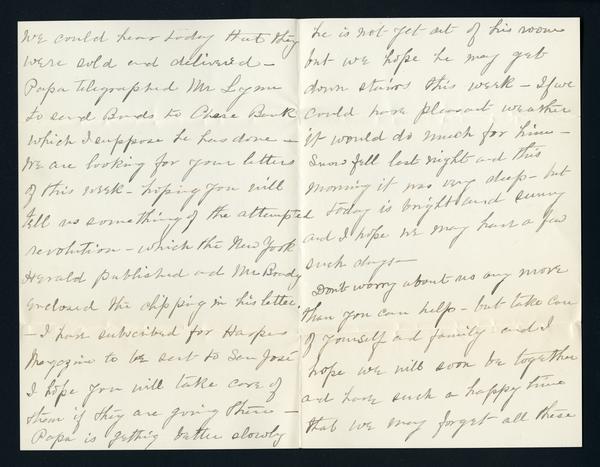 We could hear today that they
were sold and delivered –
Papa telegraphed Mr
to send Bonds to Chase Bank
which I suppose he has done –
We are looking for your letters
of this week – hoping you will
tell us something of the attempted
revolution – which the New York
Herald published and Mr Brady
enclosed the clipping in his letter.
– I have subscribed for Harpers
Magazine to be sent to San José
I hope you will take care of
them if they are going there –
Papa is getting better slowly
he is not yet out of his room
but we hope he may get
down stairs this week – If we
could have pleasant weather
it would do much for him –
Snow fell last night and this
morning it was very deep – but
today is bright and sunny
and I hope we may have a few
such days –
Don't worry about us any more
than you can help – but take care
of yourself and family and I
hope we will soon be together
and have such a happy time
that we may forget all these